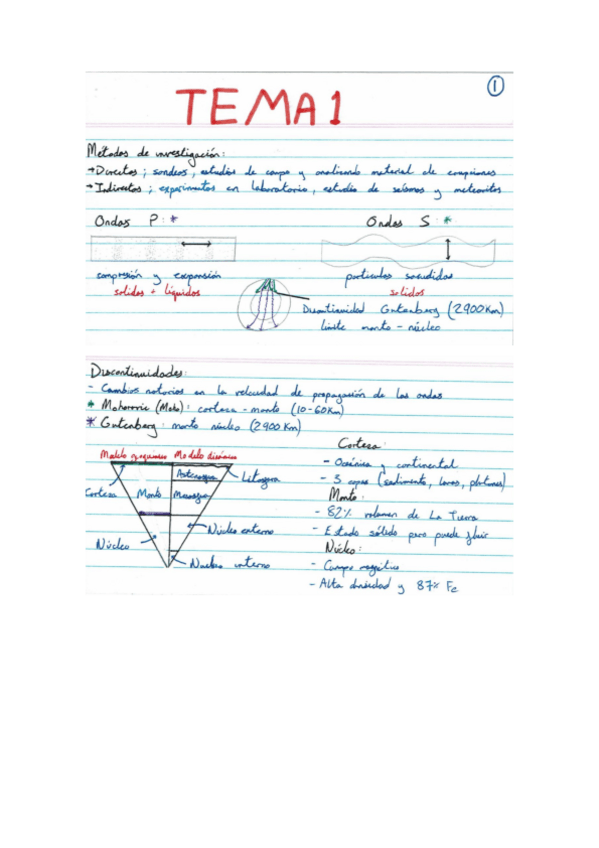 1
TEMA 1
Métodos de investigación:
→Directos; sondeos, estudios de campo y analizando material de erupciones
→Indirectos; experimentos en laboratorio, estudio de seísmos y meteoritos
Ondas P: *
Ondas S: *
compresión y expansión
sólidos + líquidos
partículas sacudidas
sólidos
Discontinuidad Gutenberg (2900 Km)
límite manto - núcleo
Discontinuidades:
- Cambios notorios en la velocidad de propagación de las ondas
* Mohorovic (Moho): corteza - manto (10-60Km)
* Gutenberg: manto núcleo (2900 Km)
Modelo geoquímico Modelo dinámico
Litosfera
Corteza
Manto
Mesosfera
Núcleo externo
Núcleo
Núcleo interno
Corteza:
- Oceánica y continental
- 3 capas (sedimento, lavas, plutones)
Manto:
- 82% volumen de La Tierra
- Estado sólido pero puede fluir
Núcleo:
- Campo magnético
- Alta densidad y 87% Fe